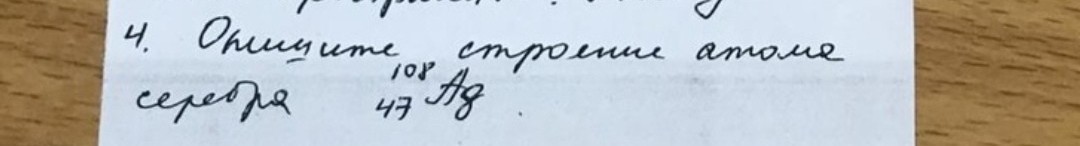 4. Опишите строение атома
серебра ¹⁰⁸₄₇Ag